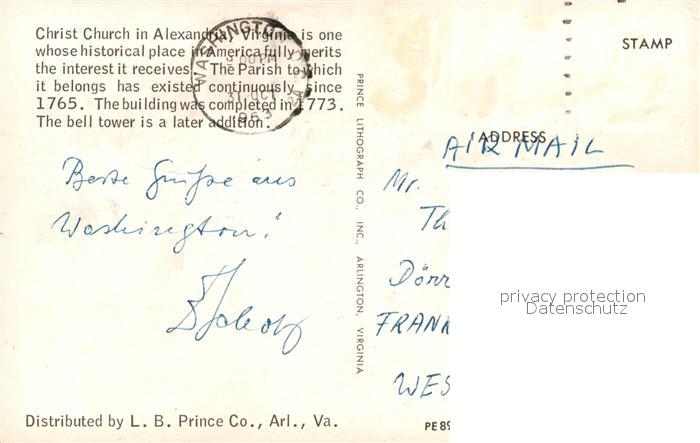 Christ Church in Alexandria, Virginia is one
whose historical place in America fully merits
the interest it receives. The Parish to which
it belongs has existed continuously since
1765. The building was completed in 1773.
The bell tower is a later addition.
WASHINGTON
31 OCT
1963
Beste Grüße aus
Washington!
Distributed by L. B. Prince Co., Arl., Va.
PRINCE LITHOGRAPH CO., INC., ARLINGTON, VIRGINIA
STAMP
ADDRESS
AIR MAIL
Mr.
Th
Dörr
FRANK
WES
PE89
privacy protection
Datenschutz